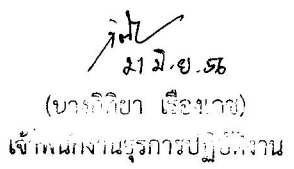 21 มิ.ย. 56
(นางกิติยา เรืองเดช)
เจ้าพนักงานธุรการปฏิบัติงาน